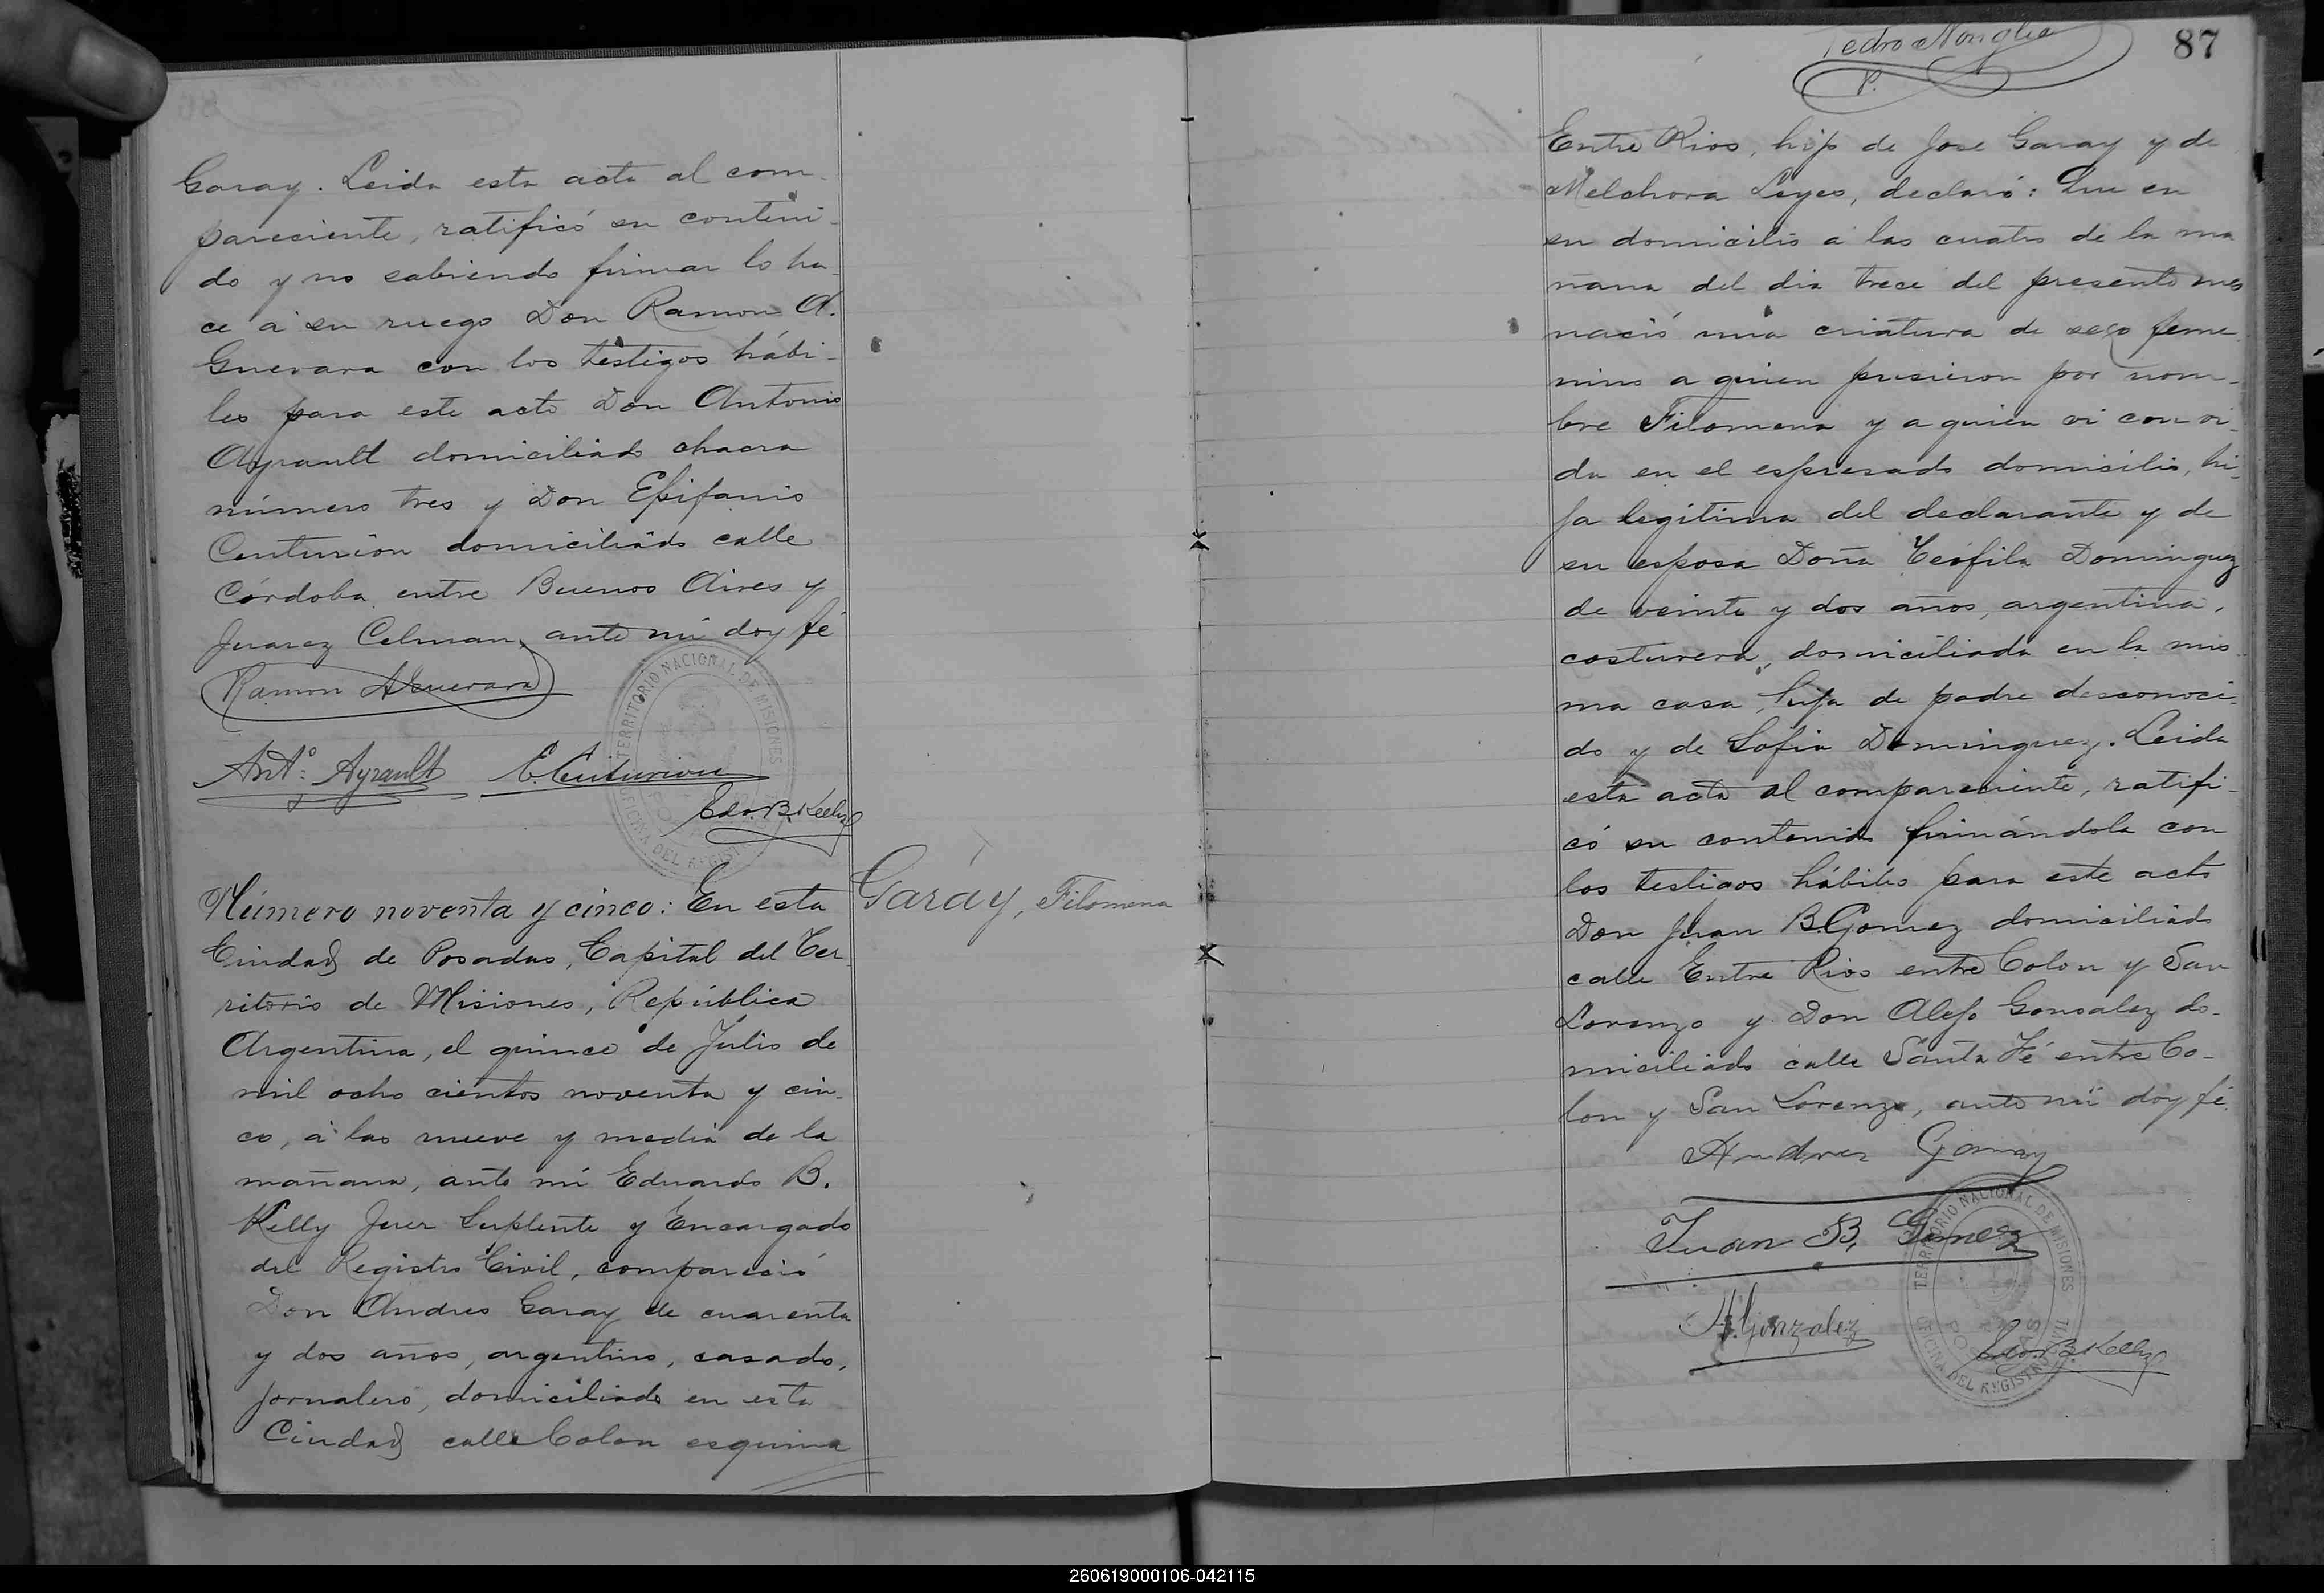 Garay. Leida esta acta al com-
pareciente, ratificó su conteni-
do y no sabiendo firmar lo ha-
ce á su ruego Don Ramon A.
Guevara con los testigos hábi-
les para este acto Don Antonio
Ayrault domiciliado chacra
número tres y Don Epifanio
Centurion domiciliado calle
Córdoba entre Buenos Aires y
Juarez Celman, ante mi doy fé
Ramon A Guevara
Antº: Ayrault E. Centurion
Edo. B. Kelly
TERRITORIO NACIONAL DE MISIONES
OFICINA DEL REGISTRO
Número noventa y cinco: En esta
Garay, Filomena
Ciudad de Posadas, Capital del Ter-
ritorio de Misiones, República
Argentina, el quince de Julio de
mil ocho cientos noventa y cin-
co, á las nueve y media de la
mañana, ante mi Eduardo B.
Kelly Juez Suplente y Encargado
del Registro Civil, compareció
Don Andres Garay de cuarenta
y dos años, argentino, casado,
jornalero, domiciliado en esta
Ciudad calle Colon esquina
87
Pedro
P.
Entre Rios, hijo de José Garay y de
Melchora Leyes, declaró: Que en
su domicilio á las cuatro de la ma
ñana del dia trece del presente mes
nació una criatura de sexo feme
nino a quien pusieron por nom-
bre Filomena y a quien vi con vi-
da en el espresado domicilio, hi-
ja legitima del declarante y de
su esposa Doña Teófila Dominguez
de veinte y dos años, argentina,
costurera, domiciliada en la mis-
ma casa, hija de padre desconoci-
do y de Sofia Dominguez. Leida
esta acta al compareciente, ratifi-
có su contenido firmándola con
los testigos hábiles para este acto
Don Juan B. Gomez domiciliado
calle Entre Rios entre Colon y San
Lorenzo y Don Alejo Gonsalez do-
miciliado calle Santa Fé entre Co-
lon y San Lorenzo, ante mi doy fé.
Andres Garay
Juan B. Gomez
A. Gonzalez
Edo. B. Kelly
TERRITORIO NACIONAL DE MISIONES
POSADAS
OFICINA DEL REGISTRO CIVIL
260619000106-042115